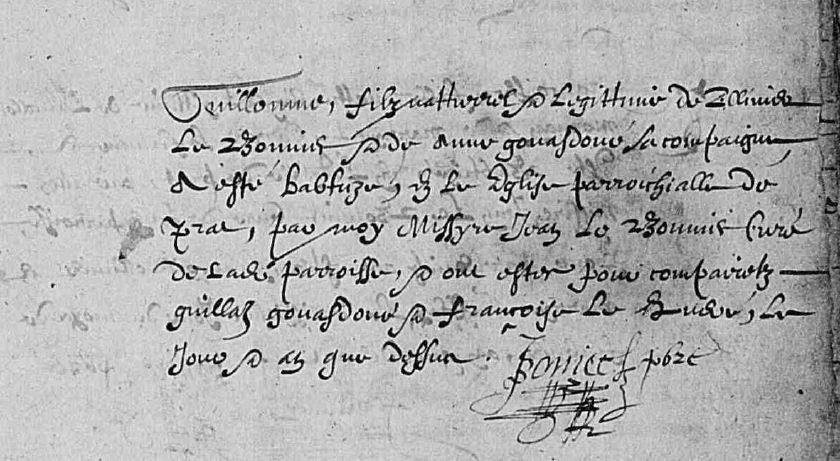 Guillomme, filz natturel & Legittime de Ollivier
Le Bonniec & de Anne gouasdoué sa compaigne,
A esté babtizé, en Le Eglise parroichialle de
Prat, par moy Missyre Jean Le Bonniec Curé
de Ladé parroisse, & ont estez pour compairietz
guillaë gouasdoué & francoise Le, Le
Jour & an que dessus. Bonniec pbre